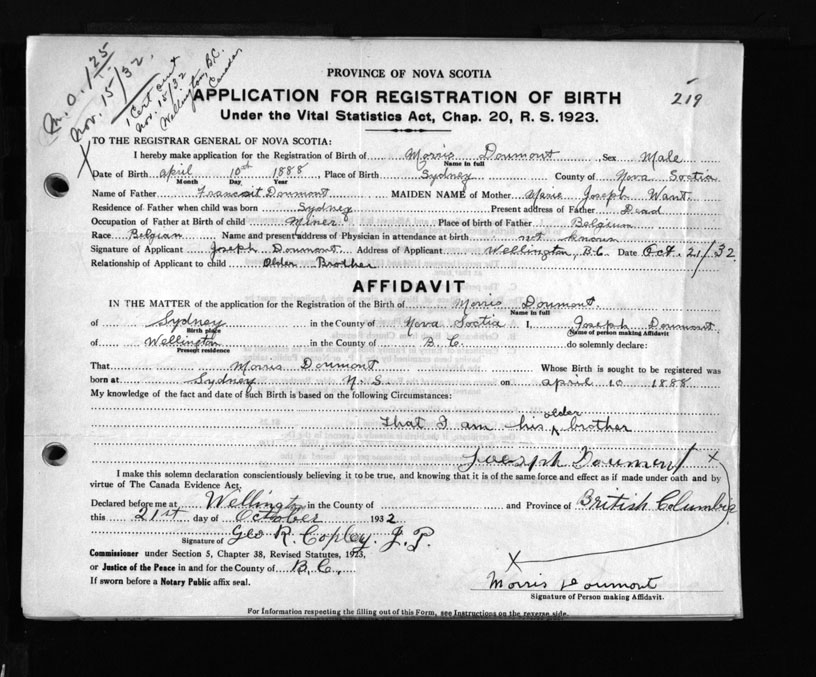 M.O. 1.25
Nov. 15/32.
Cert out
Nov. 15/32
Wellington, B.C.
Canada
219
PROVINCE OF NOVA SCOTIA
APPLICATION FOR REGISTRATION OF BIRTH
Under the Vital Statistics Act, Chap. 20, R. S. 1923.
X
TO THE REGISTRAR GENERAL OF NOVA SCOTIA:
I hereby make application for the Registration of Birth of Morris Doumont, Sex Male
Name in full
Date of Birth april 10th 1888, Place of Birth Sydney County of Nova Soctia
Month Day Year
Name of Father Doumont MAIDEN NAME of Mother Marie Joseph Want
Residence of Father when child was born Sydney Present address of Father Dead
Occupation of Father at Birth of child Miner Place of birth of Father Belgium
Race Belgian Name and present address of Physician in attendance at birth not known
Signature of Applicant Joseph Doumont Address of Applicant Wellington, B.C. Date Oct. 21/32.
Relationship of Applicant to child Older Brother
AFFIDAVIT
IN THE MATTER of the application for the Registration of the Birth of Morris Doumont
Name in full
of Sydney in the County of Nova Soctia I, Joseph Doumont
Birth place Name of person making Affidavit
of Wellington in the County of B.C. do solemnly declare:
Present residence
That Morris Doumont Whose Birth is sought to be registered was
born at Sydney N.S. on april 10 1888
My knowledge of the fact and date of such Birth is based on the following Circumstances:
older
That I am his ^ brother
Joesph Doumont X
I make this solemn declaration conscientiously believing it to be true, and knowing that it is of the same force and effect as if made under oath and by
virtue of The Canada Evidence Act.
Declared before me at Wellington in the County of and Province of British Columbia
this 21st day of October 1932
Signature of Geo R. Copley. J.P.
Commissioner under Section 5, Chapter 38, Revised Statutes, 1923,
or Justice of the Peace in and for the County of B.C.,
If sworn before a Notary Public affix seal.
X
Morris Doumont
Signature of Person making Affidavit.
For Information respecting the filling out of this Form, see Instructions on the reverse side.